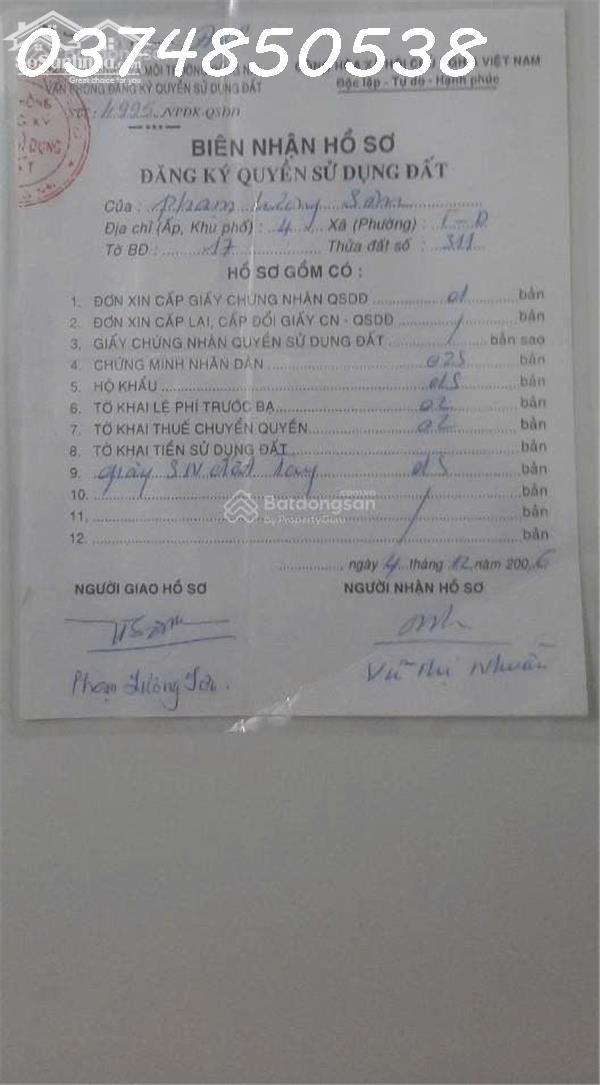 0374850538
CỘNG HÒA XÃ HỘI CHỦ NGHĨA VIỆT NAM
MÔI TRƯỜNG
Great choice for great life
Độc lập - Tự do - Hạnh phúc
VĂN PHÒNG ĐĂNG KÝ QUYỀN SỬ DỤNG ĐẤT
Số : 4995 /VPĐK-QSDĐ
BIÊN NHẬN HỒ SƠ
ĐĂNG KÝ QUYỀN SỬ DỤNG ĐẤT
Của : Phạm
Địa chỉ (Ấp, Khu phố) : 4 Xã (Phường) :
Tờ BĐ : 17 Thửa đất số : 311
HỒ SƠ GỒM CÓ :
1. ĐƠN XIN CẤP GIẤY CHỨNG NHẬN QSDĐ 01 bản
2. ĐƠN XIN CẤP LẠI, CẤP ĐỔI GIẤY CN - QSDĐ / bản
3. GIẤY CHỨNG NHẬN QUYỀN SỬ DỤNG ĐẤT / bản sao
4. CHỨNG MINH NHÂN DÂN 02S bản
5. HỘ KHẨU 01S bản
6. TỜ KHAI LỆ PHÍ TRƯỚC BẠ 02 bản
7. TỜ KHAI THUẾ CHUYỂN QUYỀN 02 bản
8. TỜ KHAI TIỀN SỬ DỤNG ĐẤT bản
9. giấy 01S bản
10. bản
Batdongsan.com.vn
by PropertyGuru
11. bản
12. bản
ngày 4 tháng 12 năm 2006
NGƯỜI GIAO HỒ SƠ NGƯỜI NHẬN HỒ SƠ
Phạm Vũ Thị Nhuần